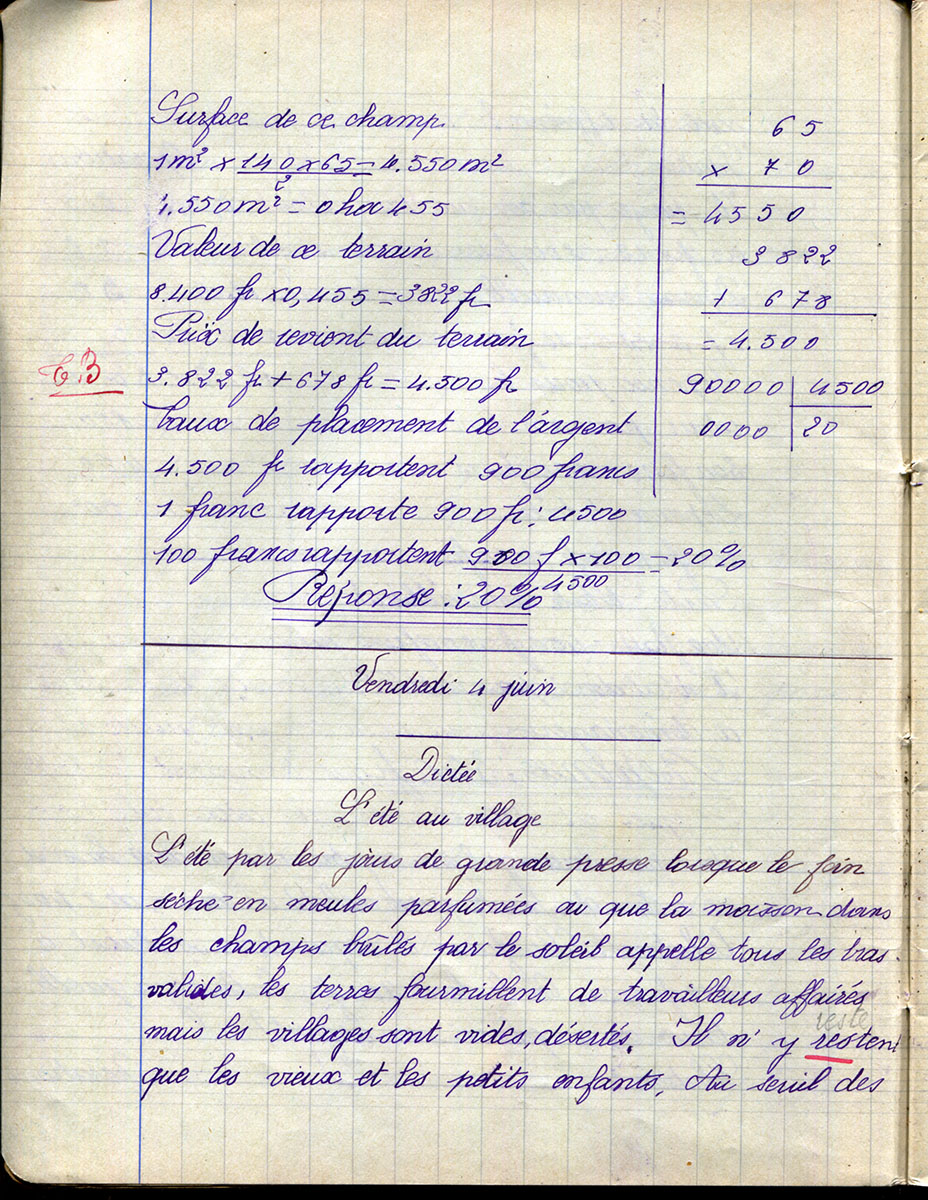 Surface de ce champ
1m² x 140 x 65 = 4.550 m²
2
4.550 m² = 0 ha 455
Valeur de ce terrain
8.400 fr x 0,455 = 3822 fr
Prix de revient du terrain
3.822 fr + 678 fr = 4.500 fr
Taux de placement de l'argent
4.500 fr rapportent 900 francs
1 franc rapporte 900 fr : 4500
100 francs rapportent 900 f x 100 = 20%
4500
Réponse : 20%
65
x 70
= 4550
3822
1 678
= 4.500
90000 | 4500
0000 | 20
TB
Vendredi 4 juin
Dictée
L'été au village
L'été par les jours de grande presse lorsque le foin
sèche en meules parfumées ou que la moisson dans
les champs brûlés par le soleil appelle tous les bras
valides, les terres fourmillent de travailleurs affairés
reste
mais les villages sont vides, désertés. Il n'y restent
que les vieux et les petits enfants. Au seuil des